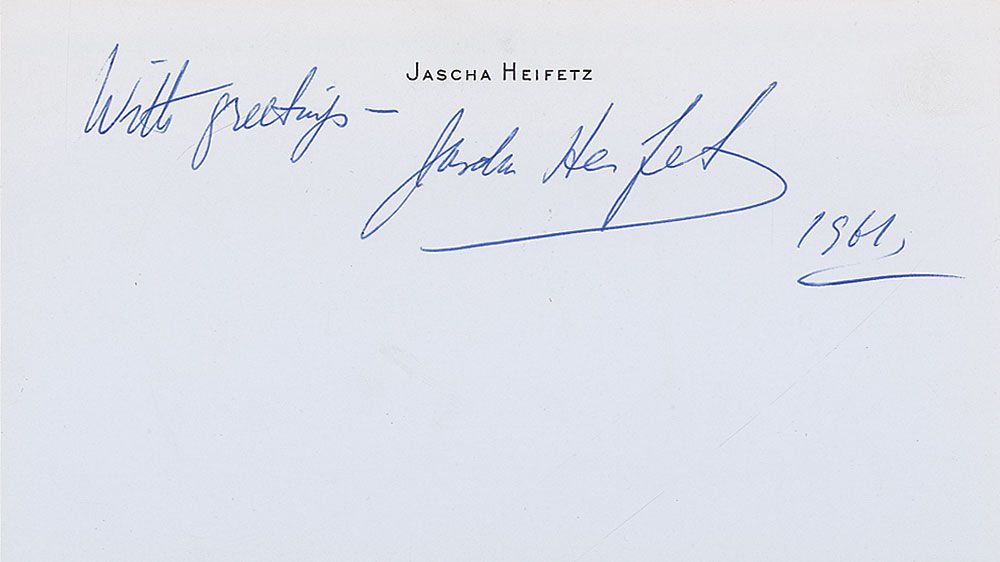 JASCHA HEIFETZ
With greetings –
Jascha Heifetz
1961,